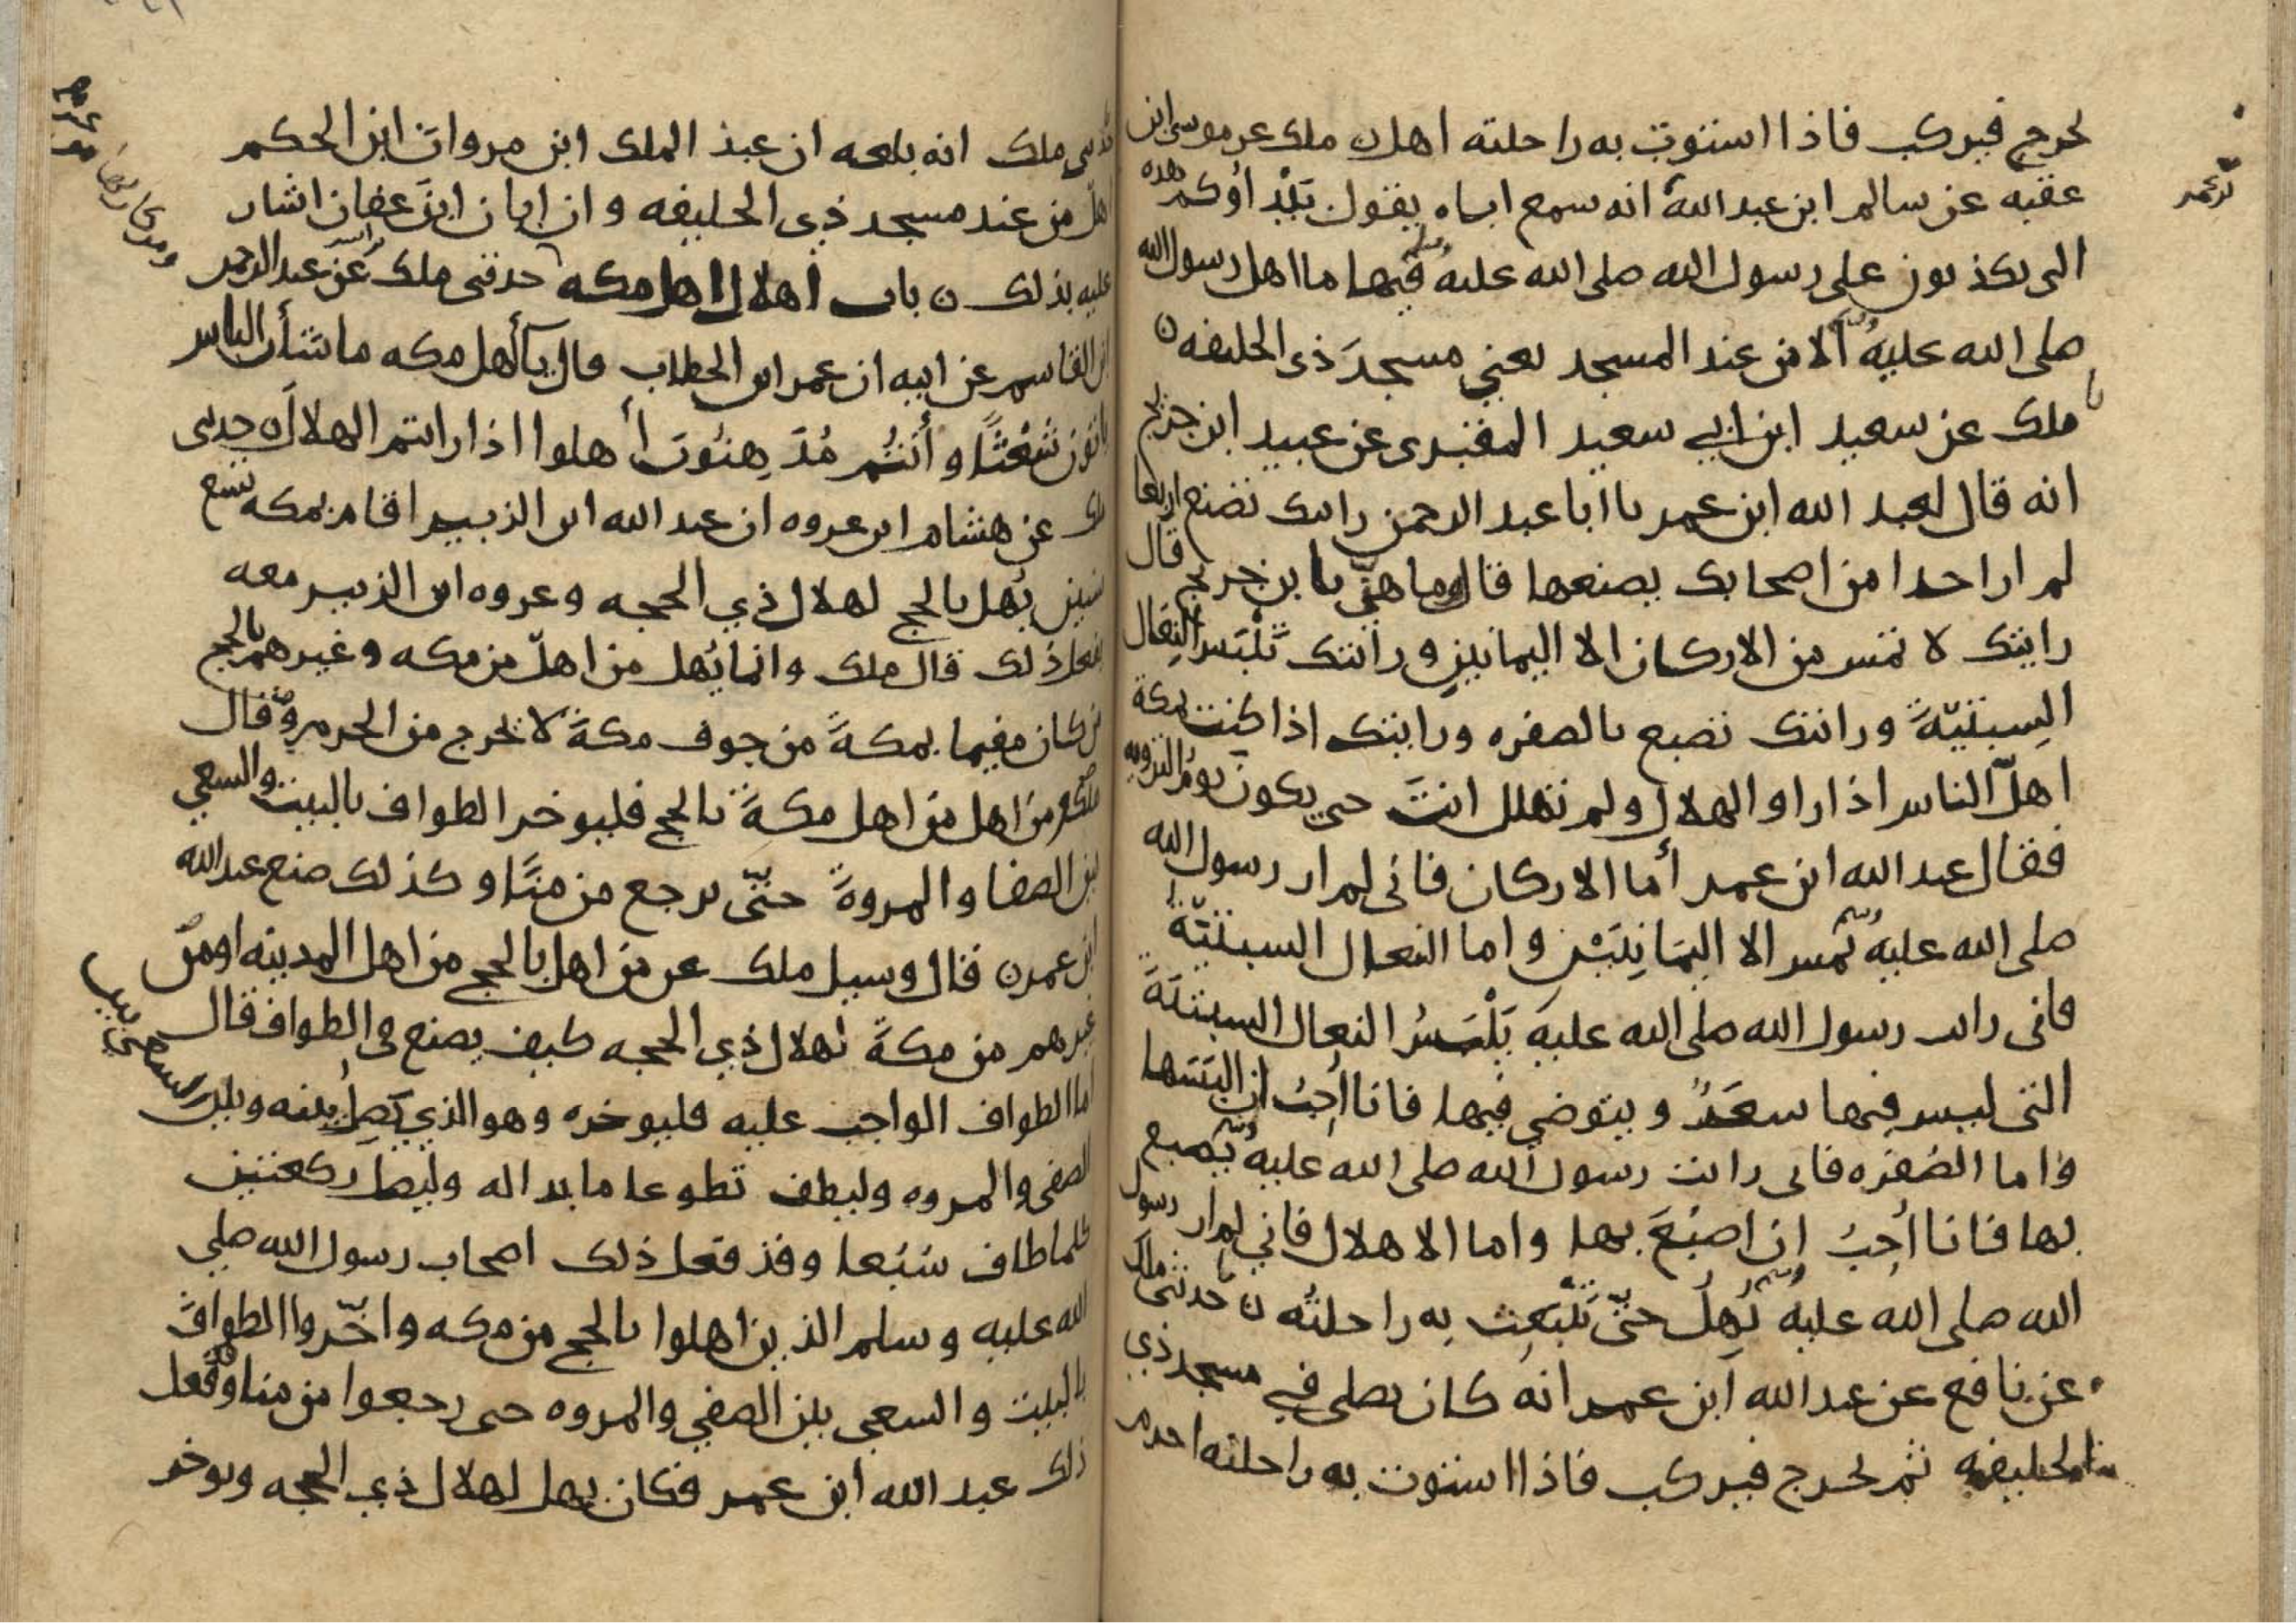 يخرج فيركب فاذا استوت به راحلته اهل ن ملك عن موسى ابن
عقبه عن سالم ابن عبد الله انه سمع اباه يقول بيداؤكم هذه
التى تكذبون على رسول الله صلى الله عليه وسلم فيها ما اهل رسول الله
صلى الله عليه وسلم الا من عند المسجد يعني مسجد ذى الحليفه ن
ملك عن سعيد ابن ابي سعيد المقبرى عن عبيد ابن جريج
انه قال لعبد الله ابن عمر يا ابا عبد الرحمن رايتك تصنع اربعا
لم ار احدا من اصحابك يصنعها قال وما هنّ يا بن جريج قال
رايتك لا تمس من الاركان الا اليمانيين ورايتك تَلْبَس النِعَال
السِبتيّةَ ورايتك تصبع بالصفره ورايتك اذا كنت بمكة
اهلّ الناس اذا راوا الهلال ولم تهلل انتَ حتى يكون يومُ الترويه
فقال عبد الله ابن عمر أما الاركان فانى لم ار رسول الله
صلى الله عليه وسلم يمس الا اليمَانِيَيْن واما النعال السبتيّة
فانى رايت رسول الله صلى الله عليه يَلْبَسُ النعال السبتيّةَ
التى ليس فيها شعَرٌ ويتوضى فيها فانا اُحِبُ ان البَسَها
واما الصُفره فانى رايت رسول الله صلى الله عليه وسلم يصبع
بها فانا اُحِبُ ان اصبُغَ بها واما الاهلال فاني لم ار رسول
الله صلى الله عليه وسلم يُهِلُ حتّى تَنْبَعِث بِه راحلتُه ن حدثنى مالك
عن نافع عن عبد الله ابن عمر انه كان يصلى في مسجد ذي
الحليفه ثم يخرج فيركب فاذا استوت به راحلته احرم
ملك انه بلغه ان عبد الملك ابن مروان ابن الحكم
اهلّ من عند مسجد ذي الحليفه وان ابان ابن عفان اشار
عليه بذلك ن باب اهلال اهل مكه حدثنى ملك عن عبد الرحمن
ابن القاسم عن ابيه ان عمر ابن الخطاب قال يآأهل مكه ما شأن الناس
ياتون شُعْثًا وأنتُم مُدَّهِنُونَ أهلوا اذا رايتم الهلال ن حدثنى
ملك عن هشام ابن عروه ان عبد الله ابن الزبير اقام بمكه تسع
سنين يُهل بالحج لهلال ذي الحجه وعروه ابن الزبير معه
يفعل ذلك قال ملك وانما يُهل من اهلّ من مكه وغيرهم بالحج
من كان مقيما بمكةَ من جوف مكةَ لا يخرج من الحرم وقال
ملك من اهل من اهل مكةَ بالحج فليوخر الطواف بالبيت والسعي
بين الصفا والمروةَ حتّى يرجع من منًا وكذلك صنع عبد الله
ابن عمر ن قال وسيل ملك عن من اهل بالحج من اهل المدينه او من
غيرهم من مكةَ لهلال ذي الحجه كيف يصنع في الطواف قال
اما الطواف الواجب عليه فليوخره وهو الذي يَصِلُ بينه وبين السعى بين
الصفى والمروه وليطف تطوعا ما بدا له وليصل ركعتين
كلما طاف سُبُعا وقد فعل ذلك اصحاب رسول الله صلي
الله عليه وسلم الذين اهلوا بالحج من مكه واخّروا الطوافَ
بالبيت والسعى بين الصفى والمروه حتى رجعوا من منا وفعل
ذلك عبد الله ابن عمر فكان يهل لهلال ذي الحجه ويوخر